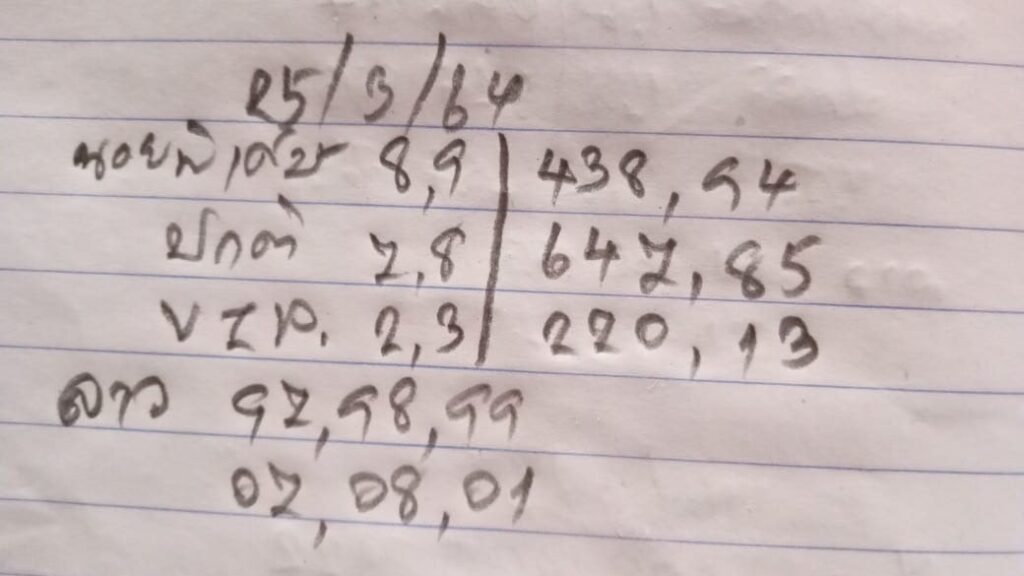 25/3/64
นอยพิเศษ 8,9 | 438,94
ปกติ 7,8 | 647,85
VIP. 2,3 | 220,13
ลาว 97,98,99
07,08,01